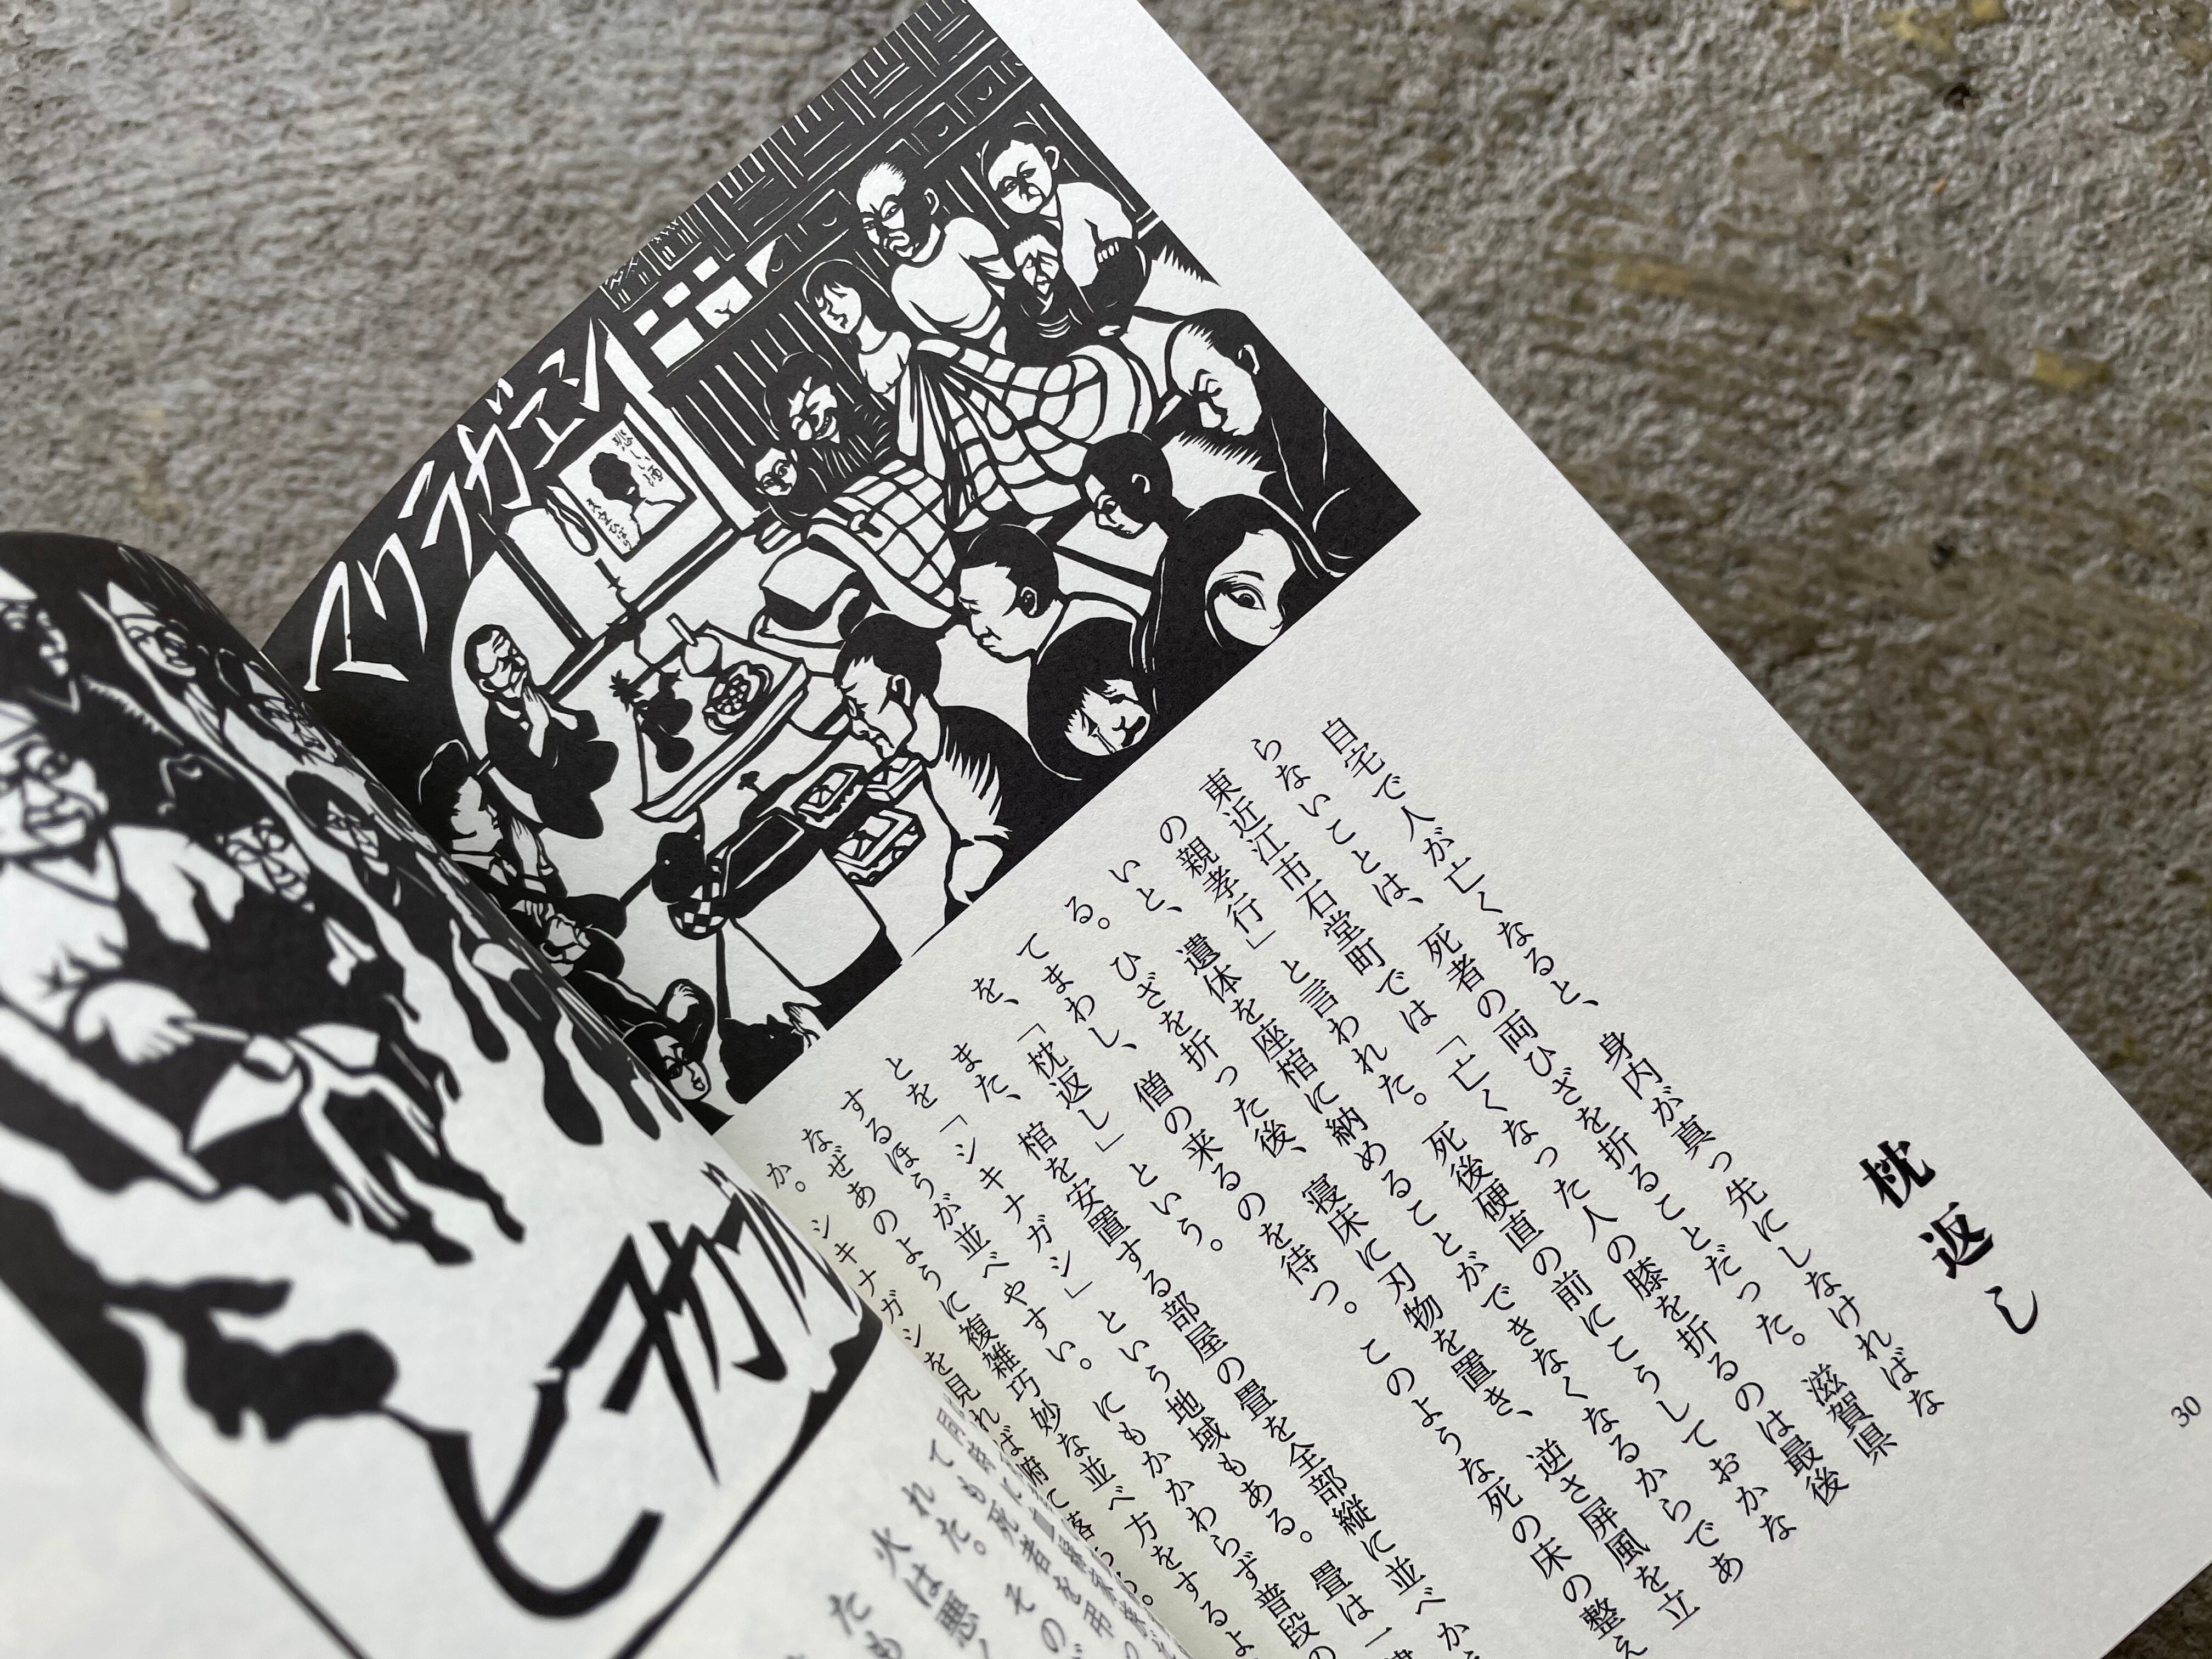 枕返し
自宅で人が亡くなると、身内が真っ先にしなければな
らないことは、死者の両ひざを折ることだった。滋賀県
東近江市石堂町では「亡くなった人の膝を折るのは最後
の親孝行」と言われた。死後硬直の前にこうしておかな
いと、遺体を座棺に納めることができなくなるからであ
る。ひざを折った後、寝床に刃物を置き、逆さ屏風を立
てまわし、僧の来るのを待つ。このような死の床の整え
を、「枕返し」という。
また、棺を安置する部屋の畳を全部縦に並べか
とを「シキナガシ」という地域もある。畳は一
するほうが並べやすい。にもかかわらず普段の
なぜあのように複雑巧妙な並べ方をするよ
か。シキナガシを見れば腑に落ちる。
30
マクラガエシ
悲しい酒
ヒヲカブル
れた。その
火は悪
たも